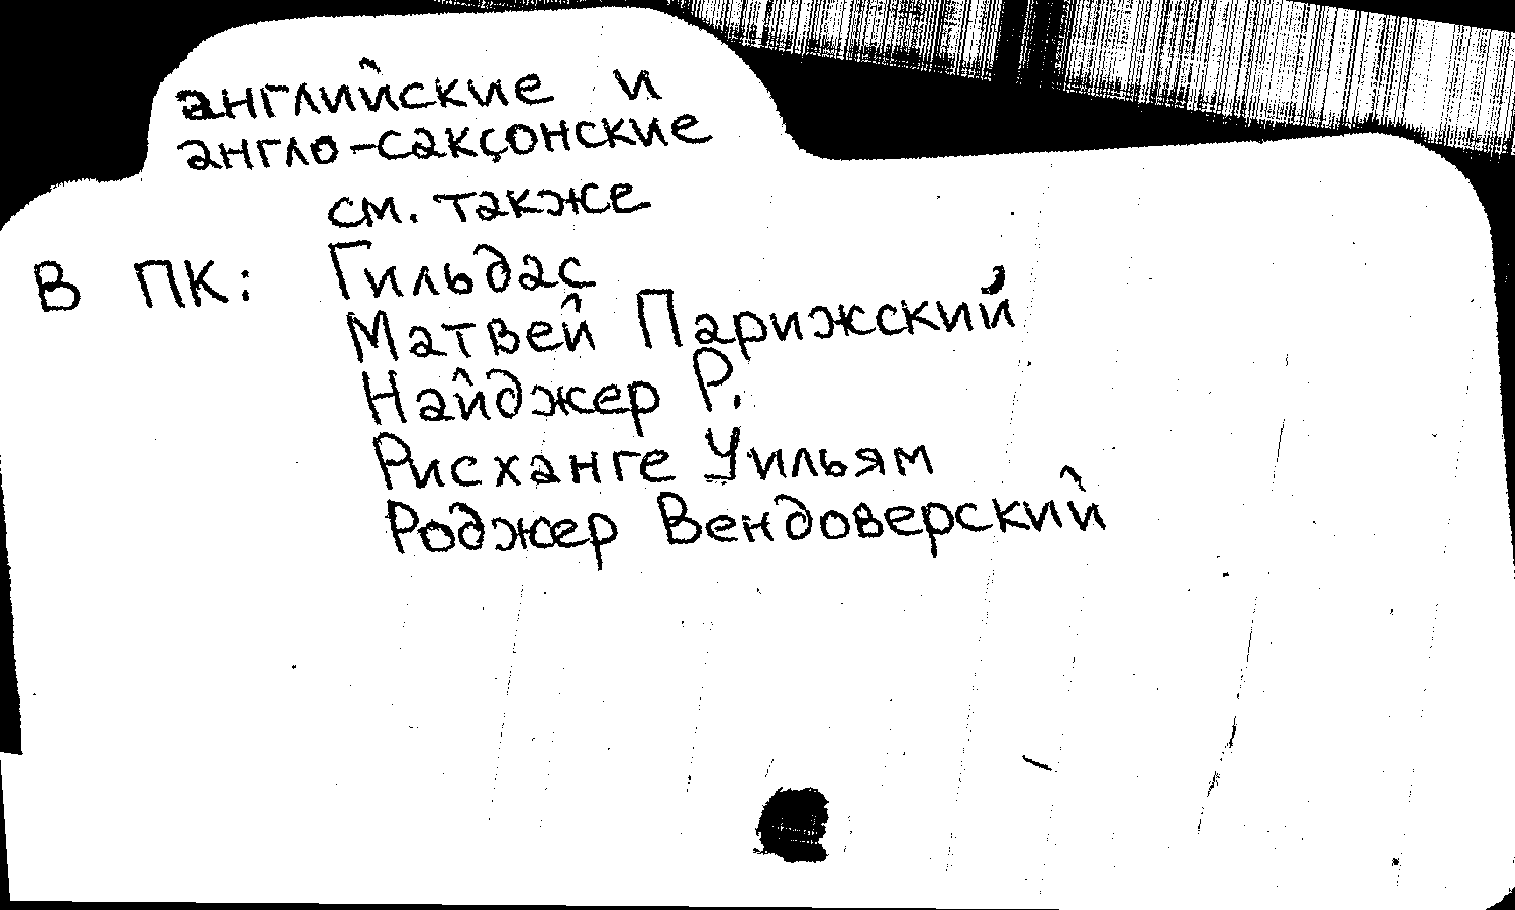 английские и
англо-саксонские
см. также
В ПК: Гильдас
Матвей Парижский
Найджер Р.
Рисханге Уильям
Роджер Вендоверский